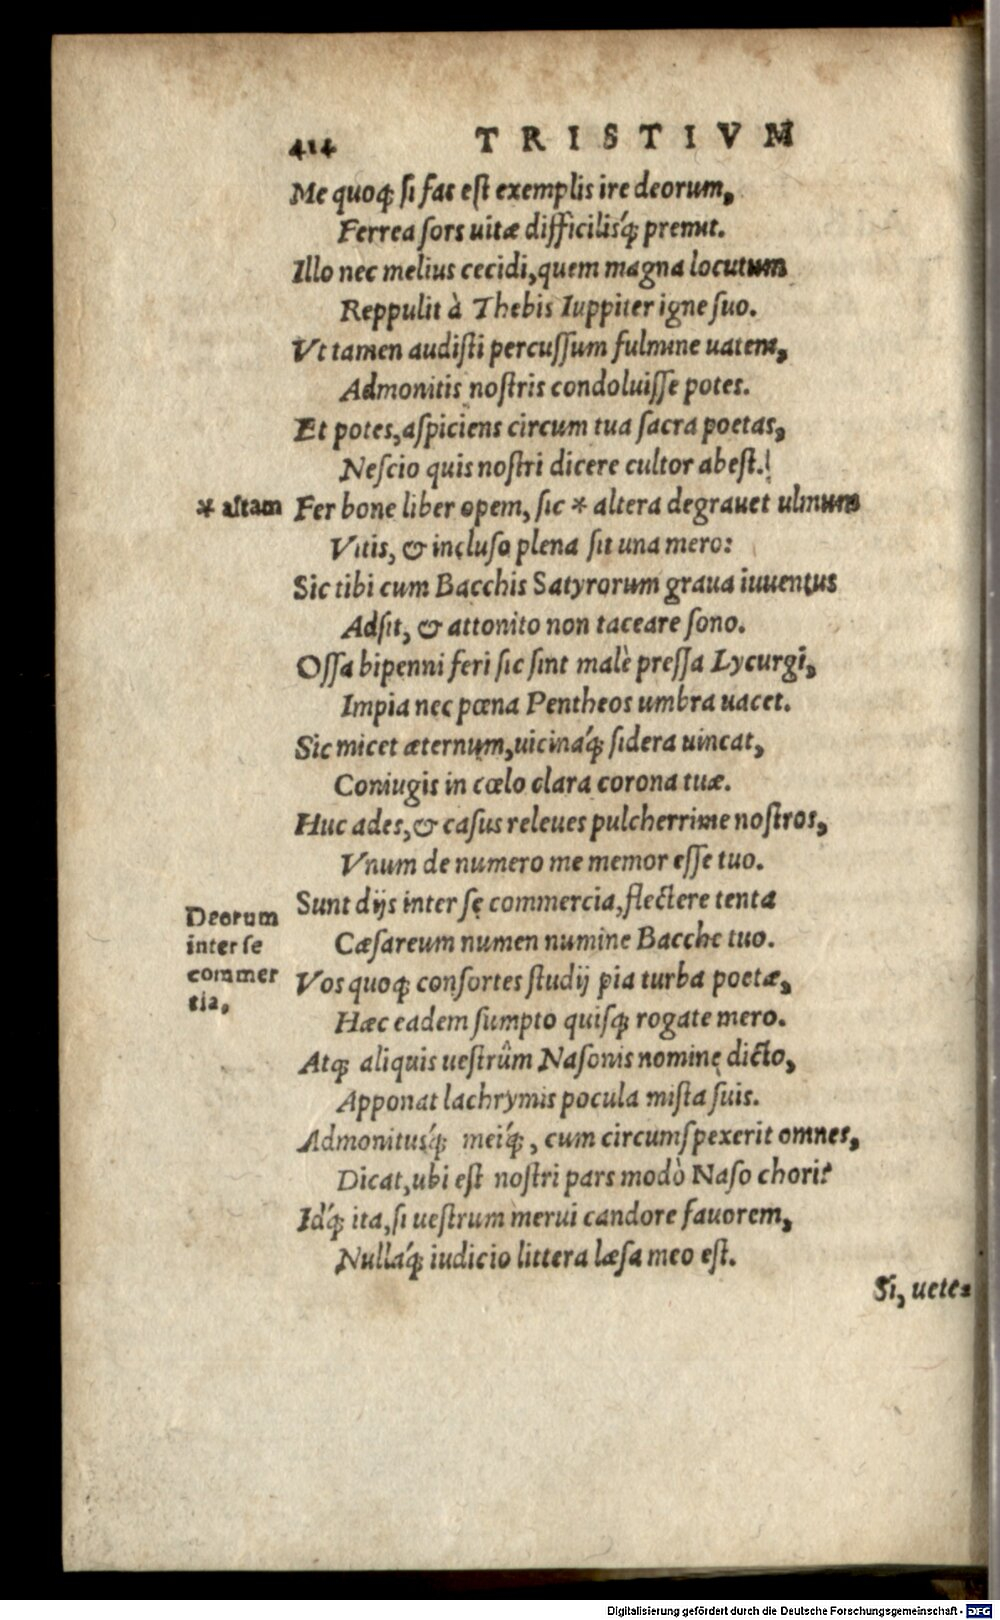 414 TRISTIVM
Me quoq; si fas est exemplis ire deorum,
Ferrea sors uitæ difficilisq́; premit.
Illo nec melius cecidi, quem magna locutum
Reppulit à Thebis Iuppiter igne suo.
Vt tamen audisti percussum fulmine uatem,
Admonitis nostris condoluisse potes.
Et potes, aspiciens circum tua sacra poetas,
Nescio quis nostri dicere cultor abest.
* astam Fer bone liber opem, sic * altera degrauet ulmum
Vitis, & incluso plena sit una mero:
Sic tibi cum Bacchis Satyrorum graua iuuentus
Adsit, & attonito non taceare sono.
Ossa bipenni feri sic sint malè pressa Lycurgi,
Impia nec pœna Pentheos umbra uacet.
Sic micet æternum, uicinaq́; sidera uincat,
Coniugis in cœlo clara corona tuæ.
Huc ades, & casus releues pulcherrime nostros,
Vnum de numero me memor esse tuo.
Sunt dijs inter se commercia, flectere tenta
Deorum
inter se
commer
tia,
Cæsareum numen numine Bacche tuo.
Vos quoq; consortes studij pia turba poetæ,
Hæc eadem sumpto quisq; rogate mero.
Atq; aliquis uestrûm Nasonis nomine dicto,
Apponat lachrymis pocula mista suis.
Admonitusq́; meiq́;, cum circumspexerit omnes,
Dicat, ubi est nostri pars modò Naso chori?
Idq́; ita, si uestrum merui candore fauorem,
Nullaq́; iudicio littera læsa meo est.
Si, uete=
Digitalisierung gefördert durch die Deutsche Forschungsgemeinschaft - DFG